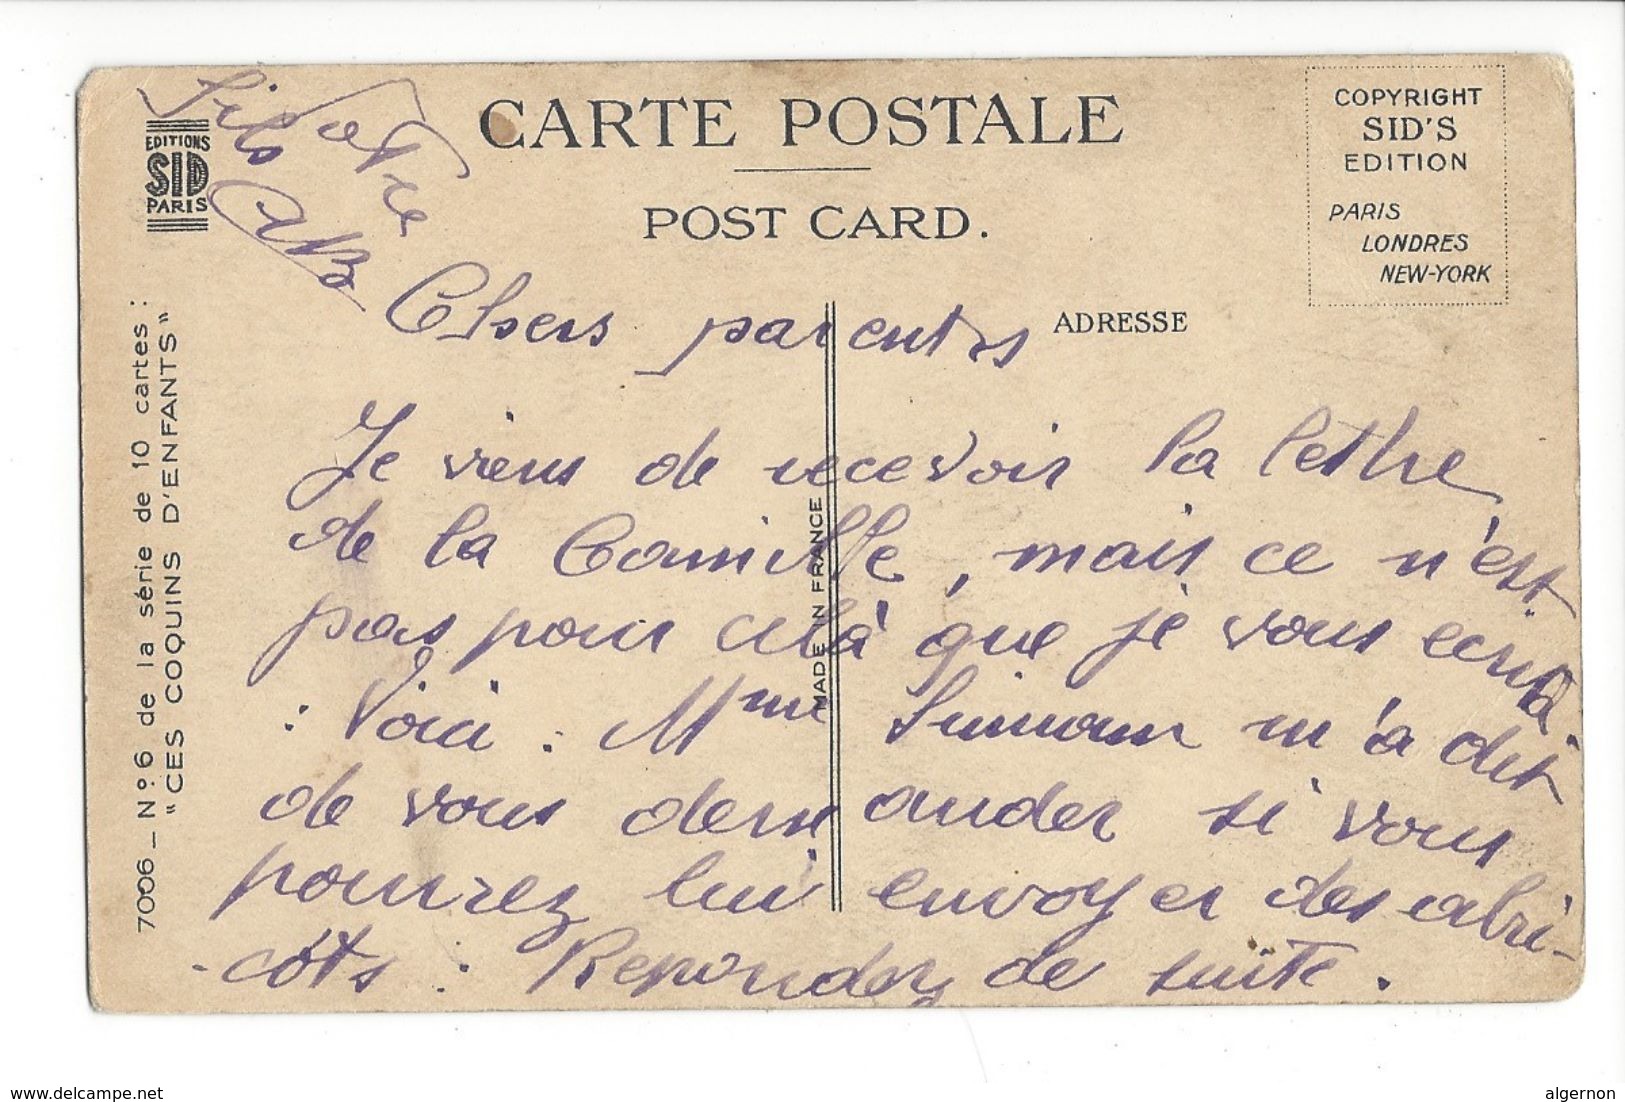 CARTE POSTALE
POST CARD.
COPYRIGHT
SID'S
EDITION
PARIS
LONDRES
NEW-YORK
EDITIONS
SID
PARIS
ADRESSE
MADE IN FRANCE
7006 — Nº 6 de la série de 10 cartes :
"CES COQUINS D'ENFANTS"
Chers parents
Je viens de recevoir la lettre
de la Camille, mais ce n'est
pas pour celà que je vous écris
: Voici : Mme m'a dit
de vous demander si vous
pourrez lui envoyer des abri-
-côts : Repondez de suite.
Votre
fils
AB
delcampe.net
algernon